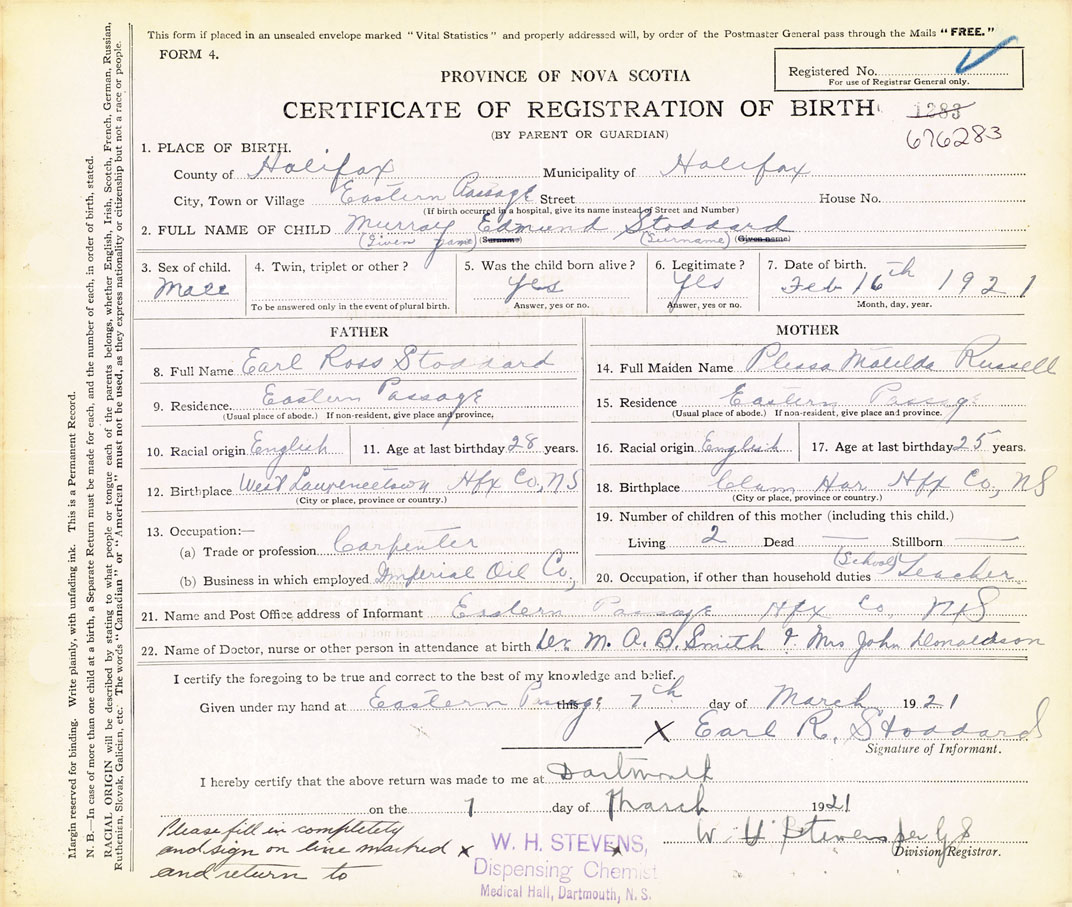 This form if placed in an unsealed envelope marked "Vital Statistics" and properly addressed will, by order of the Postmaster General pass through the Mails "FREE."
FORM 4.
Registered No.
For use of Registrar General only.
PROVINCE OF NOVA SCOTIA
CERTIFICATE OF REGISTRATION OF BIRTH
1283
676283
(BY PARENT OR GUARDIAN)
1. PLACE OF BIRTH.
County of Halifax Municipality of Halifax
City, Town or Village Eastern Passage Street House No.
(If birth occurred in a hospital, give its name instead of Street and Number)
2. FULL NAME OF CHILD Murray Edmund Stoddard
(Given name) (Surname) (Surname) (Given name)
3. Sex of child. 4. Twin, triplet or other? 5. Was the child born alive? 6. Legitimate? 7. Date of birth.
Male Yes Yes Feb 16th 1921
To be answered only in the event of plural birth. Answer, yes or no. Answer, yes or no. Month, day, year.
FATHER MOTHER
8. Full Name Earl Ross Stoddard
9. Residence. Eastern Passage
(Usual place of abode.) If non-resident, give place and province,
10. Racial origin English 11. Age at last birthday 28 years.
12. Birthplace West Lawrencetown Hfx Co, NS
(City or place, province or country.)
13. Occupation:—
(a) Trade or profession Carpenter
(b) Business in which employed Imperial Oil Co,
14. Full Maiden Name Matilda Russell
15. Residence Eastern Passage
(Usual place of abode.) If non-resident, give place and province.
16. Racial origin English 17. Age at last birthday 25 years.
18. Birthplace Clam Har Hfx Co, NS
(City or place, province or country.)
19. Number of children of this mother (including this child.)
Living 2 Dead — Stillborn —
20. Occupation, if other than household duties (School) Teacher
21. Name and Post Office address of Informant Eastern Passage Hfx Co, NS
22. Name of Doctor, nurse or other person in attendance at birth Dr. M. A. B. Smith & Mrs John Donaldson
I certify the foregoing to be true and correct to the best of my knowledge and belief.
Given under my hand at Eastern Passage this 7th day of March 1921
X Earl R. Stoddard
Signature of Informant.
I hereby certify that the above return was made to me at Dartmouth
on the 7 day of March 1921
W. H Stevens per G S
Division Registrar.
Please fill in completely
and sign on line marked x
and return to
W. H. STEVENS,
x
Dispensing Chemist
Medical Hall, Dartmouth, N. S.
Margin reserved for binding. Write plainly, with unfading ink. This is a Permanent Record.
N. B.—In case of more than one child at a birth, a Separate Return must be made for each, and the number of each, in order of birth, stated.
RACIAL ORIGIN will be described by stating to what people or tongue each of the parents belongs, whether English, Irish, Scotch, French, German, Russian,
Ruthenian, Slovak, Galician, etc. The words "Canadian" or "American" must not be used, as they express nationality or citizenship but not a race or people.